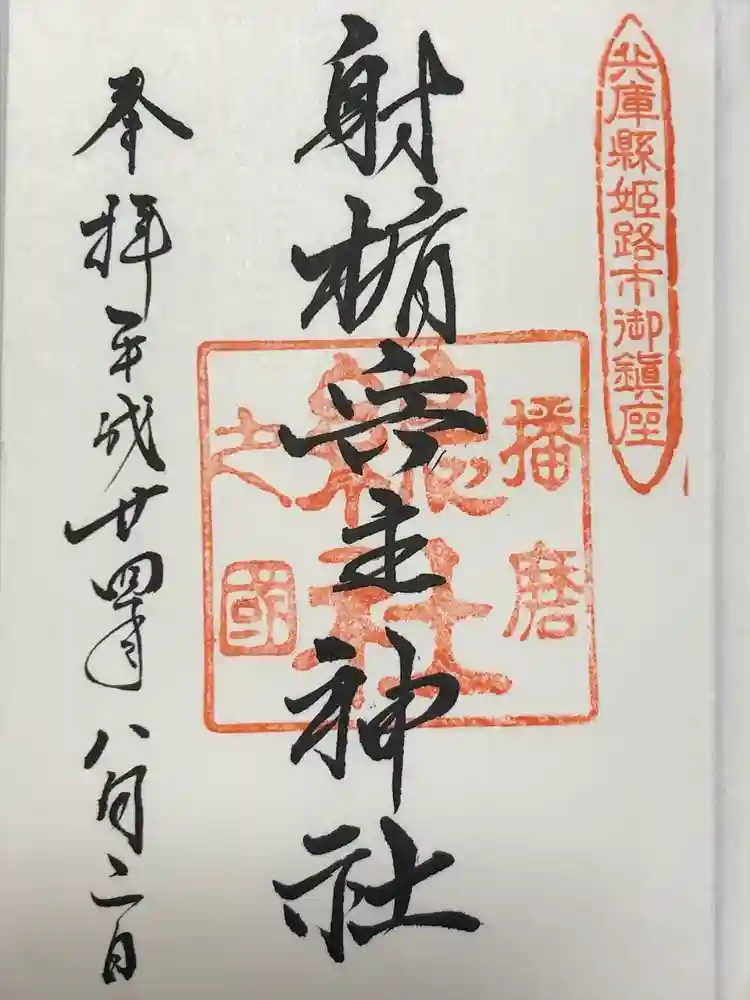 兵庫縣姫路市御鎮座
射楯兵主神社
播磨
總社
之國
奉拝平成廿四年八月二日